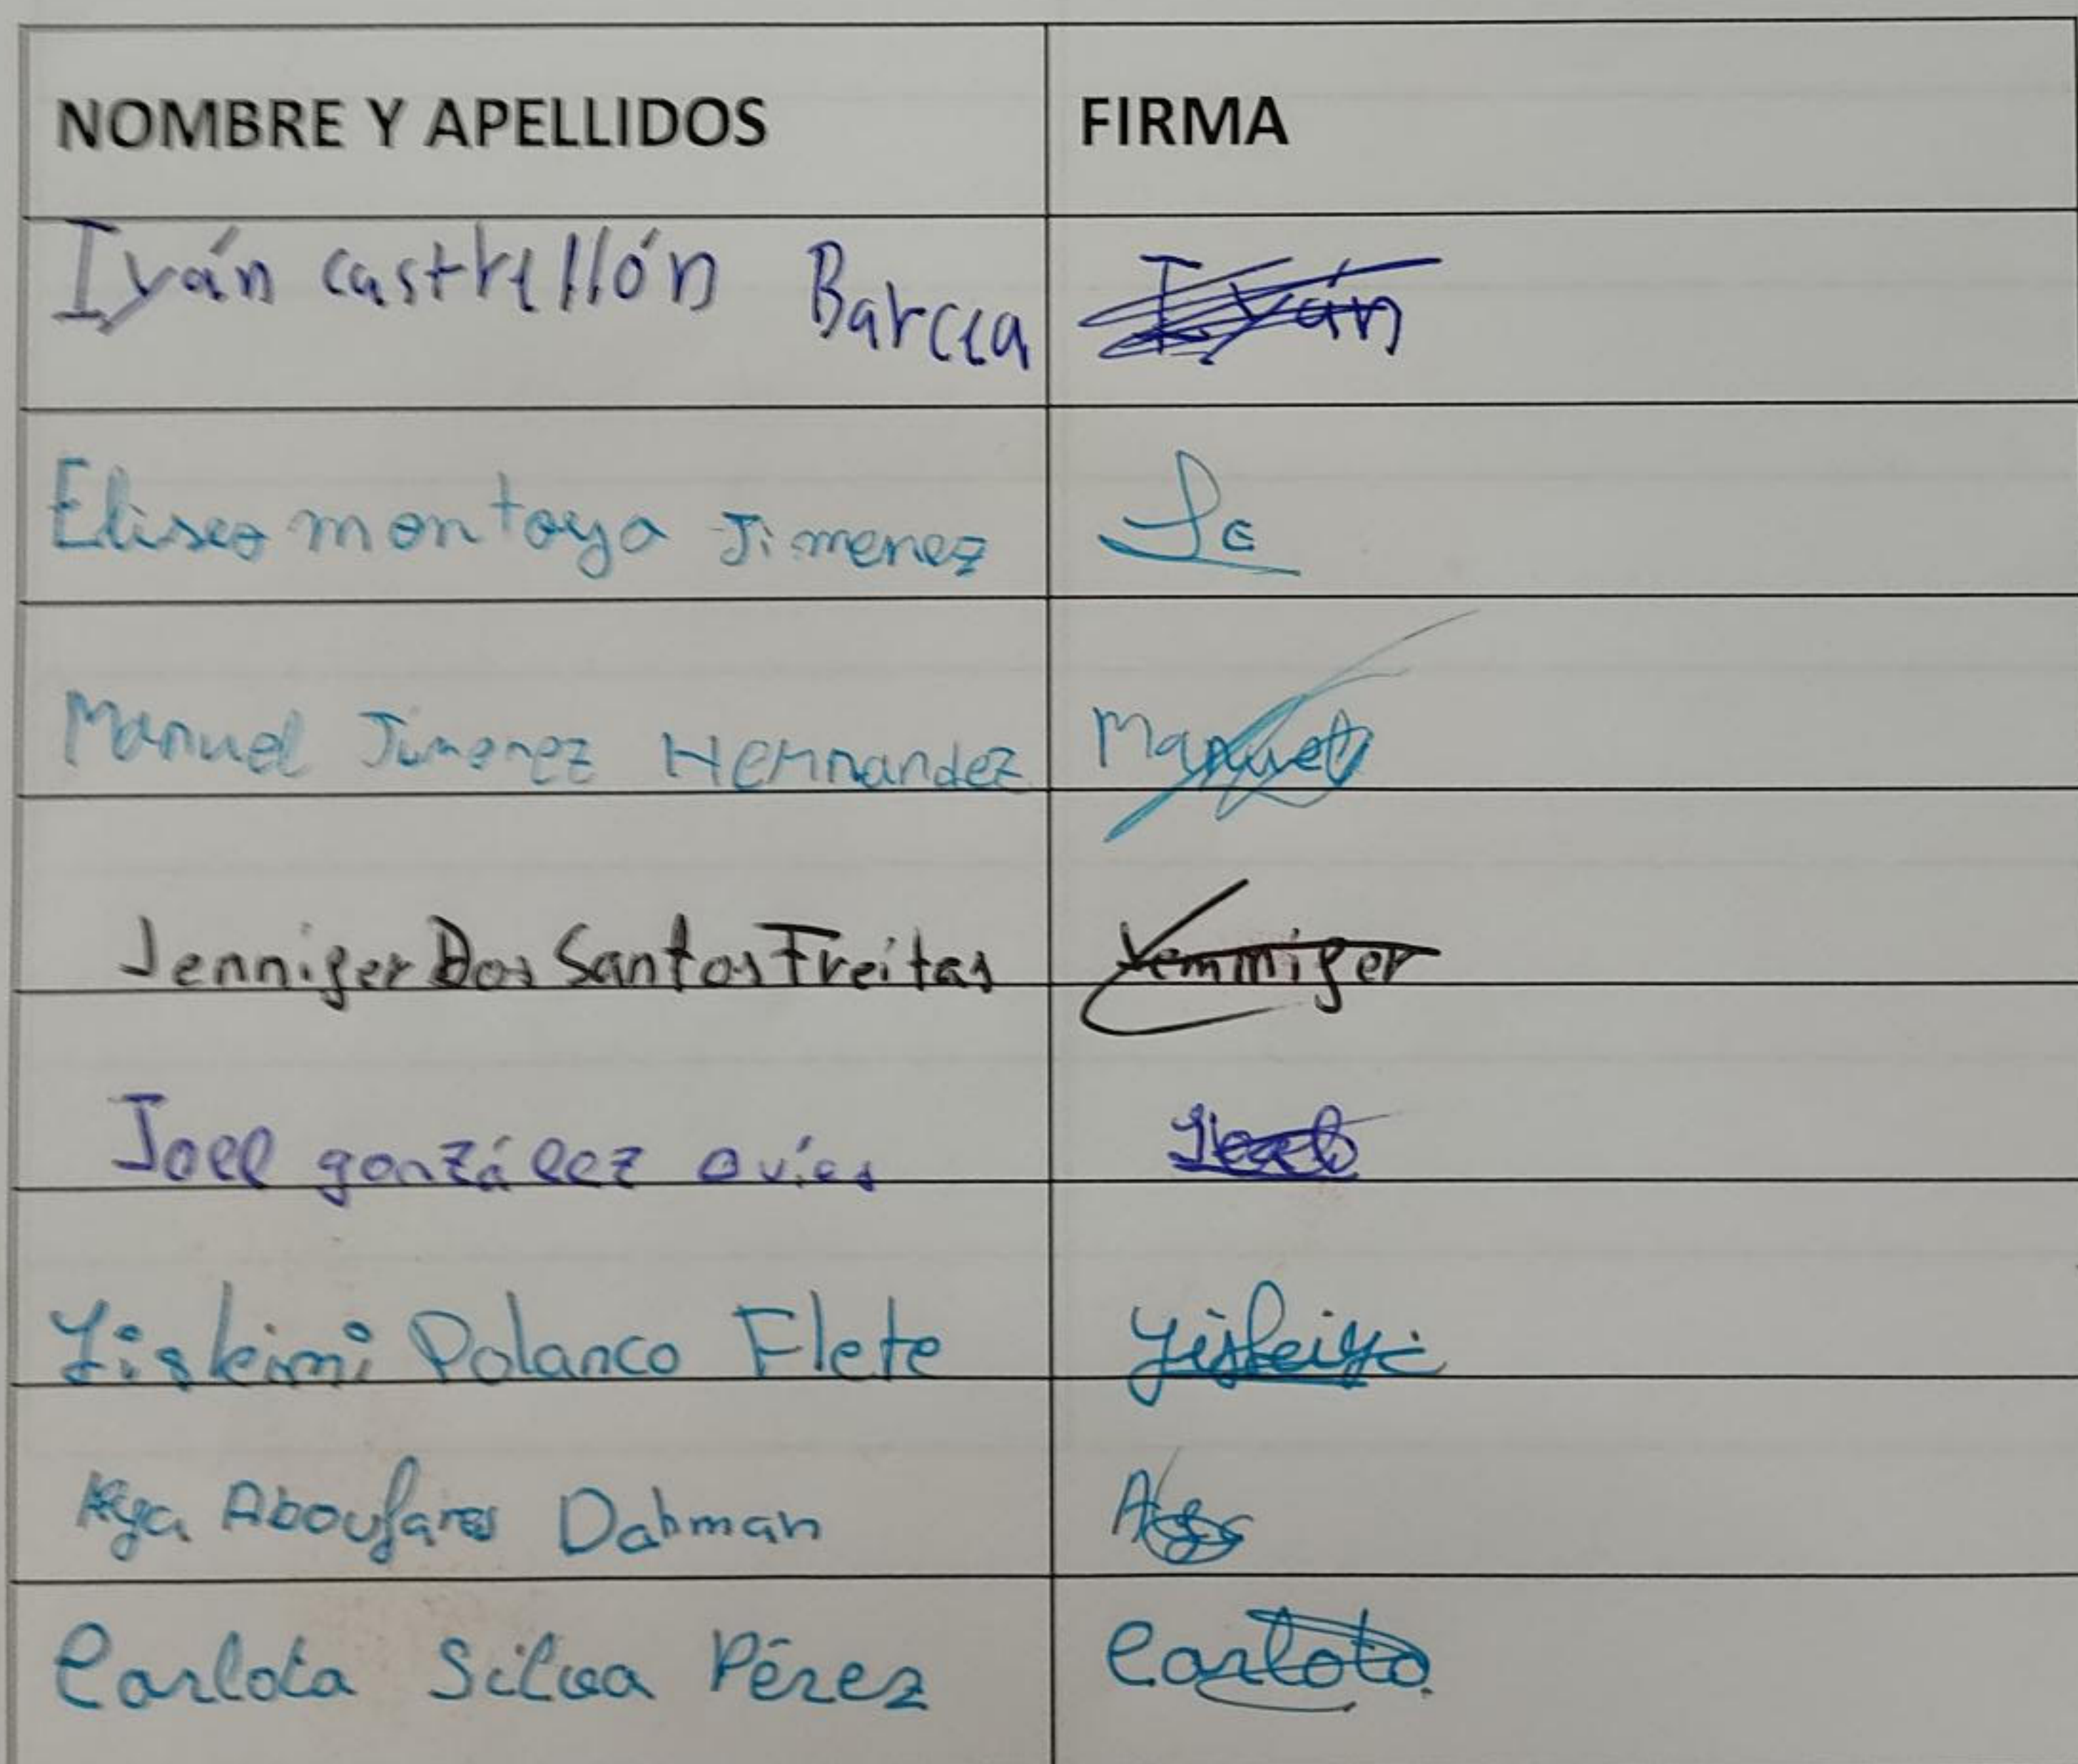 NOMBRE Y APELLIDOS FIRMA
Iván castrillón Barcia Iván
Eliseo montoya Jimenez
Manuel Jimenez Hernandez Manuel
Jennifer Dos Santos Freitas Yennifer
Joel gonzález ovies Joel
Yiskeimi Polanco Flete
Aboufares Dahman
Carlota Silva Pérez Carlota